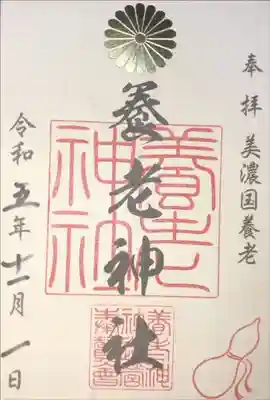 奉拝 美濃国養老
養老神社
養老神社
養老神
社宮司
奉賛会
令和五年十二月一日